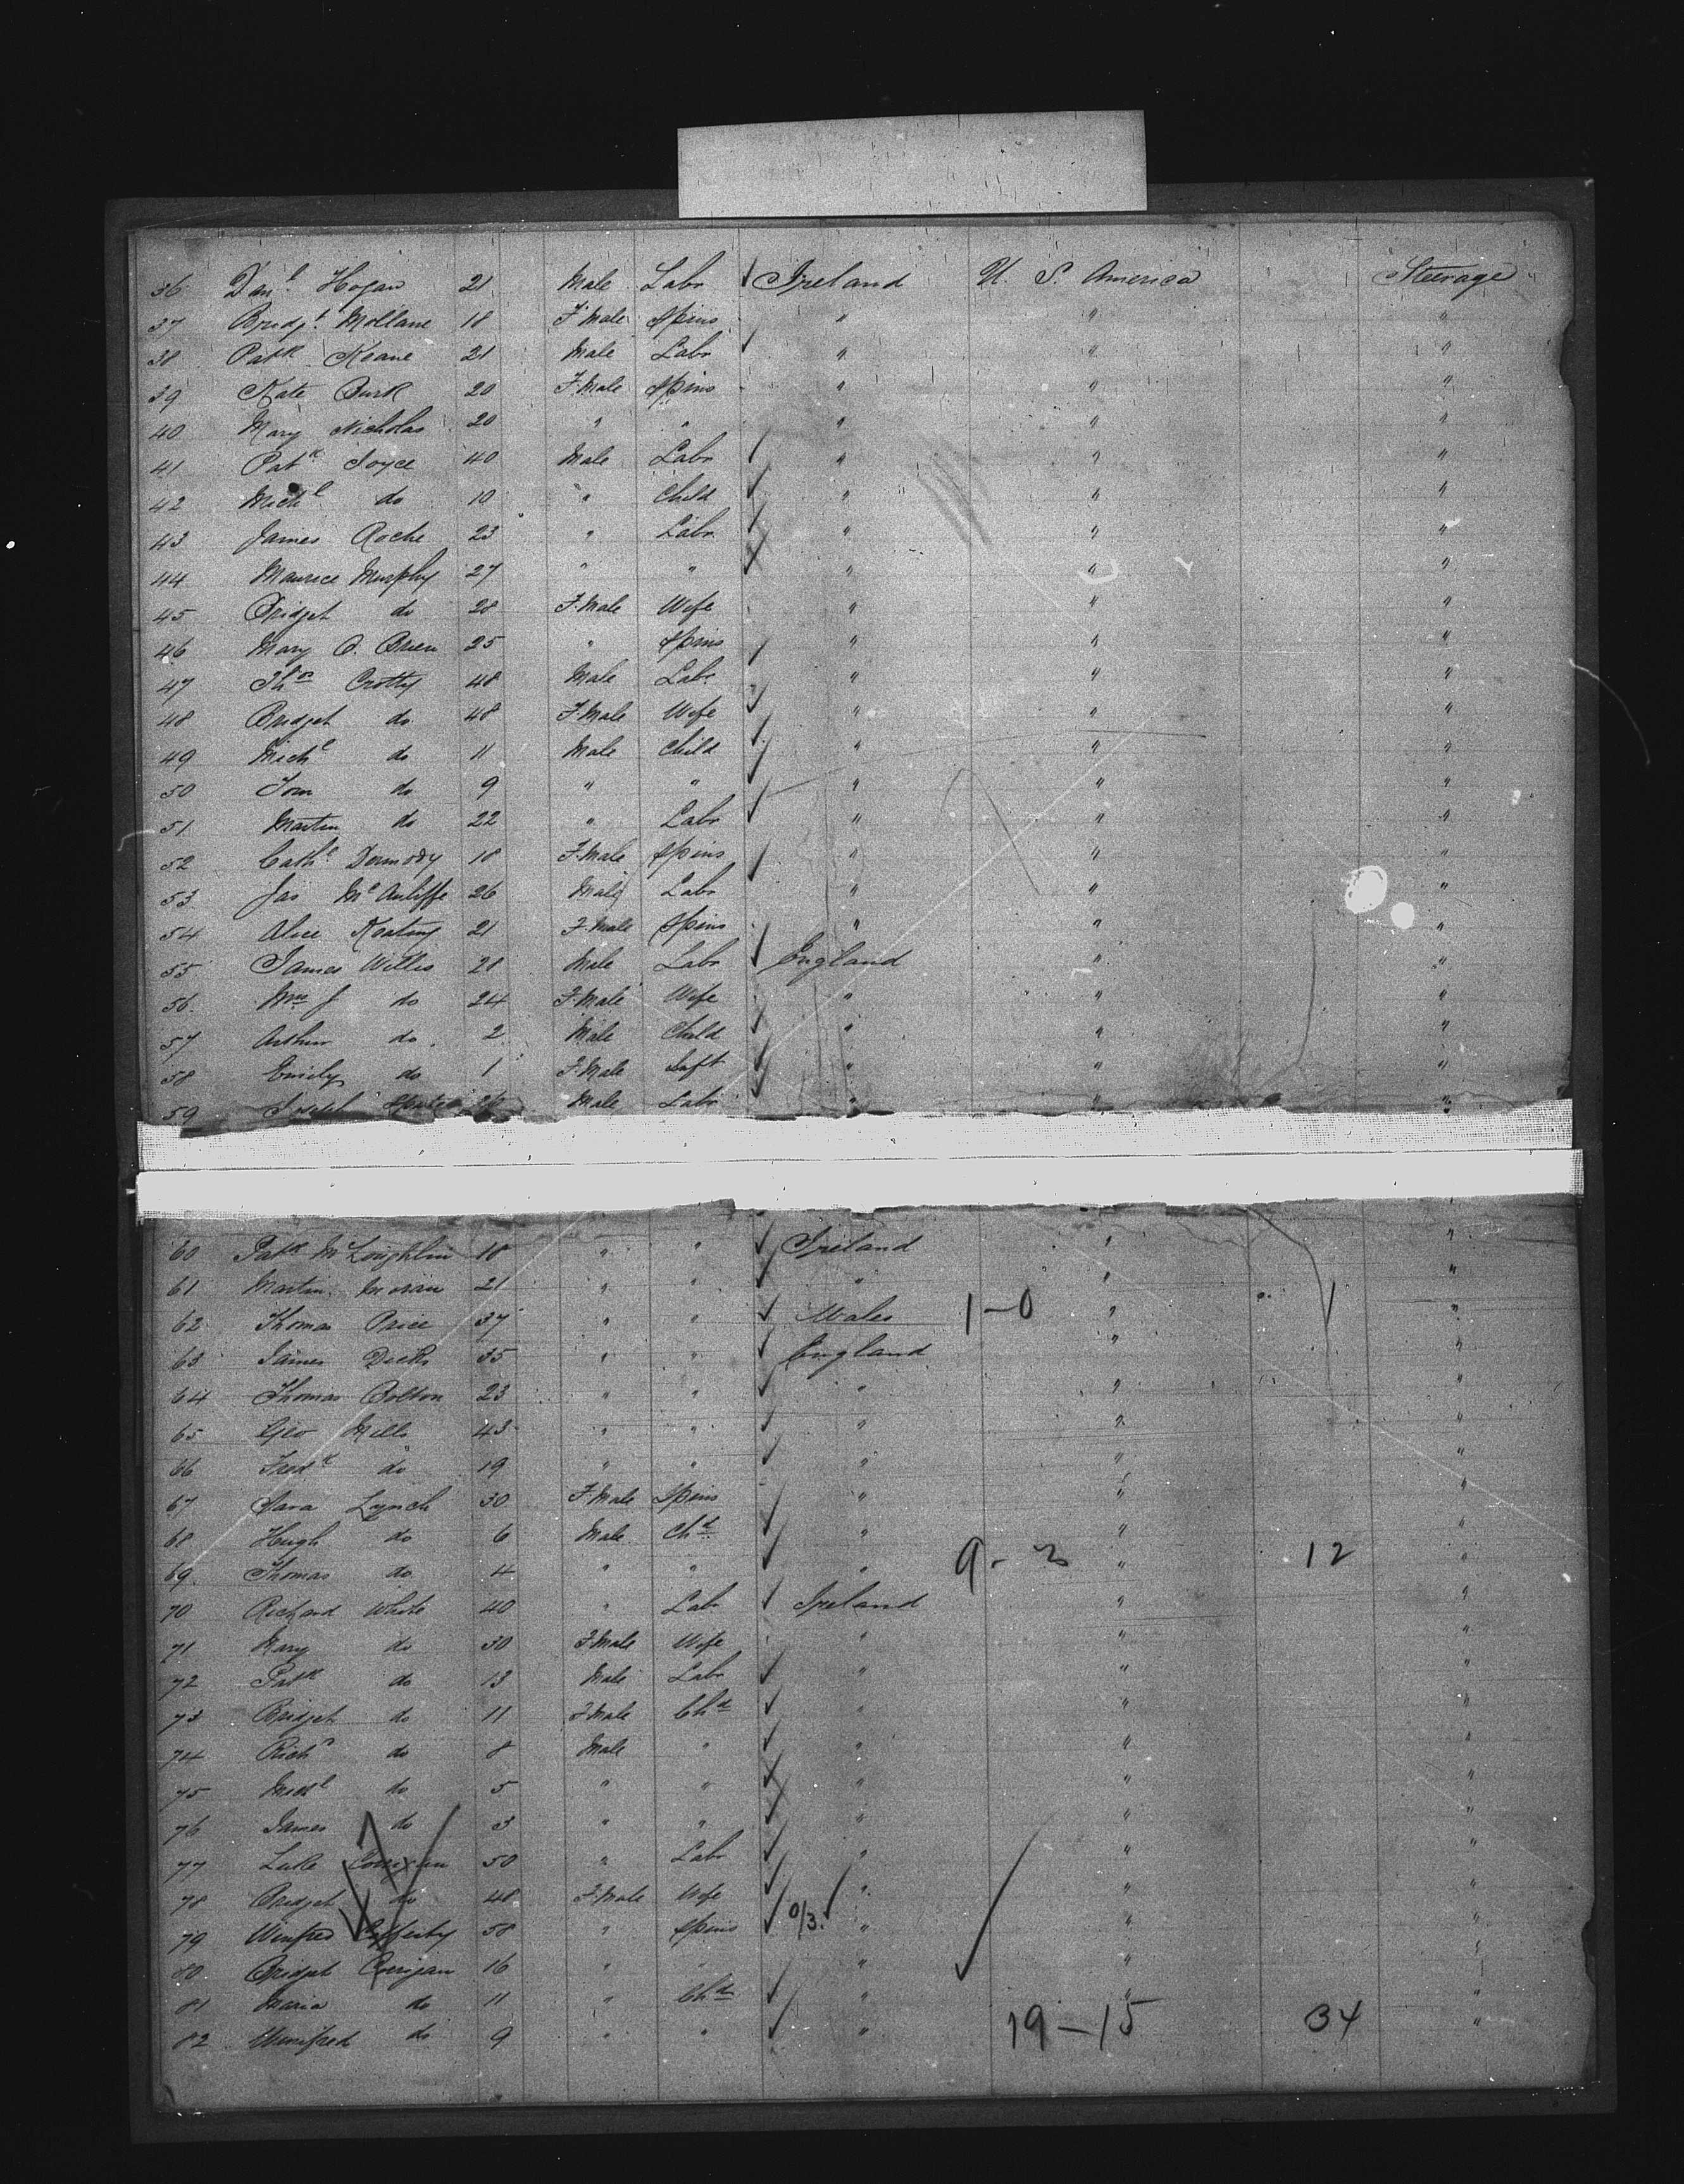 36 Danl Hogan 21 Male Labr Ireland U. S. America Steerage
37 Bridgt Mollane 18 F.Male Spins " " "
38 Patk Keane 21 Male Labr " " "
39 Kate Burk 20 F.Male Spins " " "
40 Mary Nicholas 20 " " " " "
41 Patk Joyce 40 Male Labr " " "
42 Michl do 10 " Child " " "
43 James Roche 23 " Labr " " "
44 Maurice Murphy 27 " " " " "
45 Bridget do 28 F.Male Wife " " "
46 Mary O. Brien 25 " Spins " " "
47 Thos Crotty 48 Male Labr " " "
48 Bridget do 48 F.Male Wife " " "
49 Michl do 11 Male Child " " "
50 Tom do 9 " " " " "
51 Martin do 22 " Labr " " "
52 Cathe Dermody 18 F.Male Spins " " "
53 Jas McAuliffe 26 Male Labr " " "
54 Alice Keating 21 F.Male Spins " " "
55 James Willis 28 Male Labr England " "
56 Mrs J do 24 F.Male Wife " " "
57 Arthur do 2 Male Child " " "
58 Emily do 1 F.Male Inft " " "
59 Joseph Male Labr " " "
60 Patk McLoughlin 18 " " Ireland " "
61 Martin Moran 21 " " " " "
62 Thomas Price 37 " " Wales 1-0 " 1 "
63 James Dicks 35 " " England " "
64 Thomas Bolton 23 " " " " "
65 Geo Mills 43 " " " " "
66 Fredk do 19 " " " " "
67 Sara Lynch 30 F.Male Spins " " "
68 Hugh do 6 Male Chd " " "
69 Thomas do 4 " " " 9-3 " 12 "
70 Richard White 40 " Labr Ireland " "
71 Mary do 30 F.Male Wife " " "
72 Patk do 13 Male Labr " " "
73 Bridget do 11 F.Male Chd " " "
74 Richd do 8 Male " " " "
75 Michl do 5 " " " " "
76 James do 3 " " " " "
77 Luke Corrigan 50 " Labr " " "
78 Bridget do 48 F.Male Wife " " "
79 Winfred 58 " Spins 0/3. " " "
80 Bridget Corrigan 16 " " " " "
81 Maria do 11 " Chd " " "
82 Winifred do 9 " " " 19-15 34 "